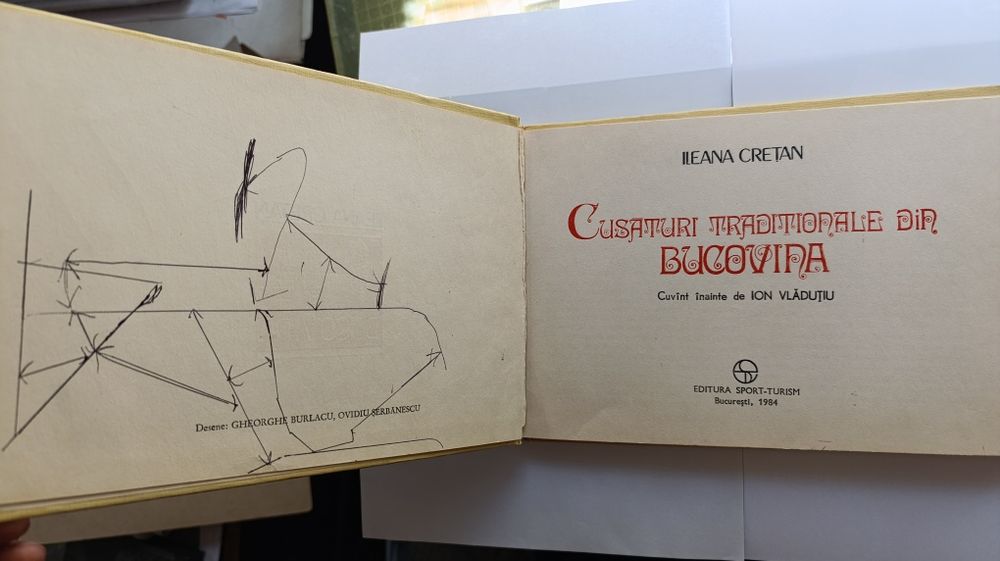 Desene: GHEORGHE BURLACU, OVIDIU ȘERBĂNESCU
ILEANA CREȚAN
CUSATURI TRADITIONALE DIN
BUCOVINA
Cuvînt înainte de ION VLĂDUȚIU
EDITURA SPORT-TURISM
București, 1984